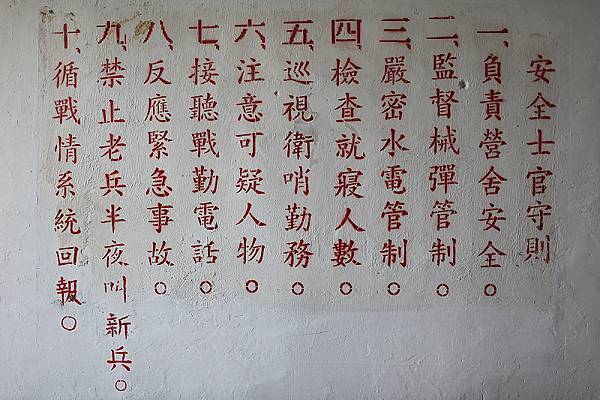 安全士官守則
一、負責營舍安全。
二、監督械彈管制。
三、嚴密水電管制。
四、檢查就寢人數。
五、巡視衛哨勤務。
六、注意可疑人物。
七、接聽戰勤電話。
八、反應緊急事故。
九、禁止老兵半夜叫新兵。
十、循戰情系統回報。